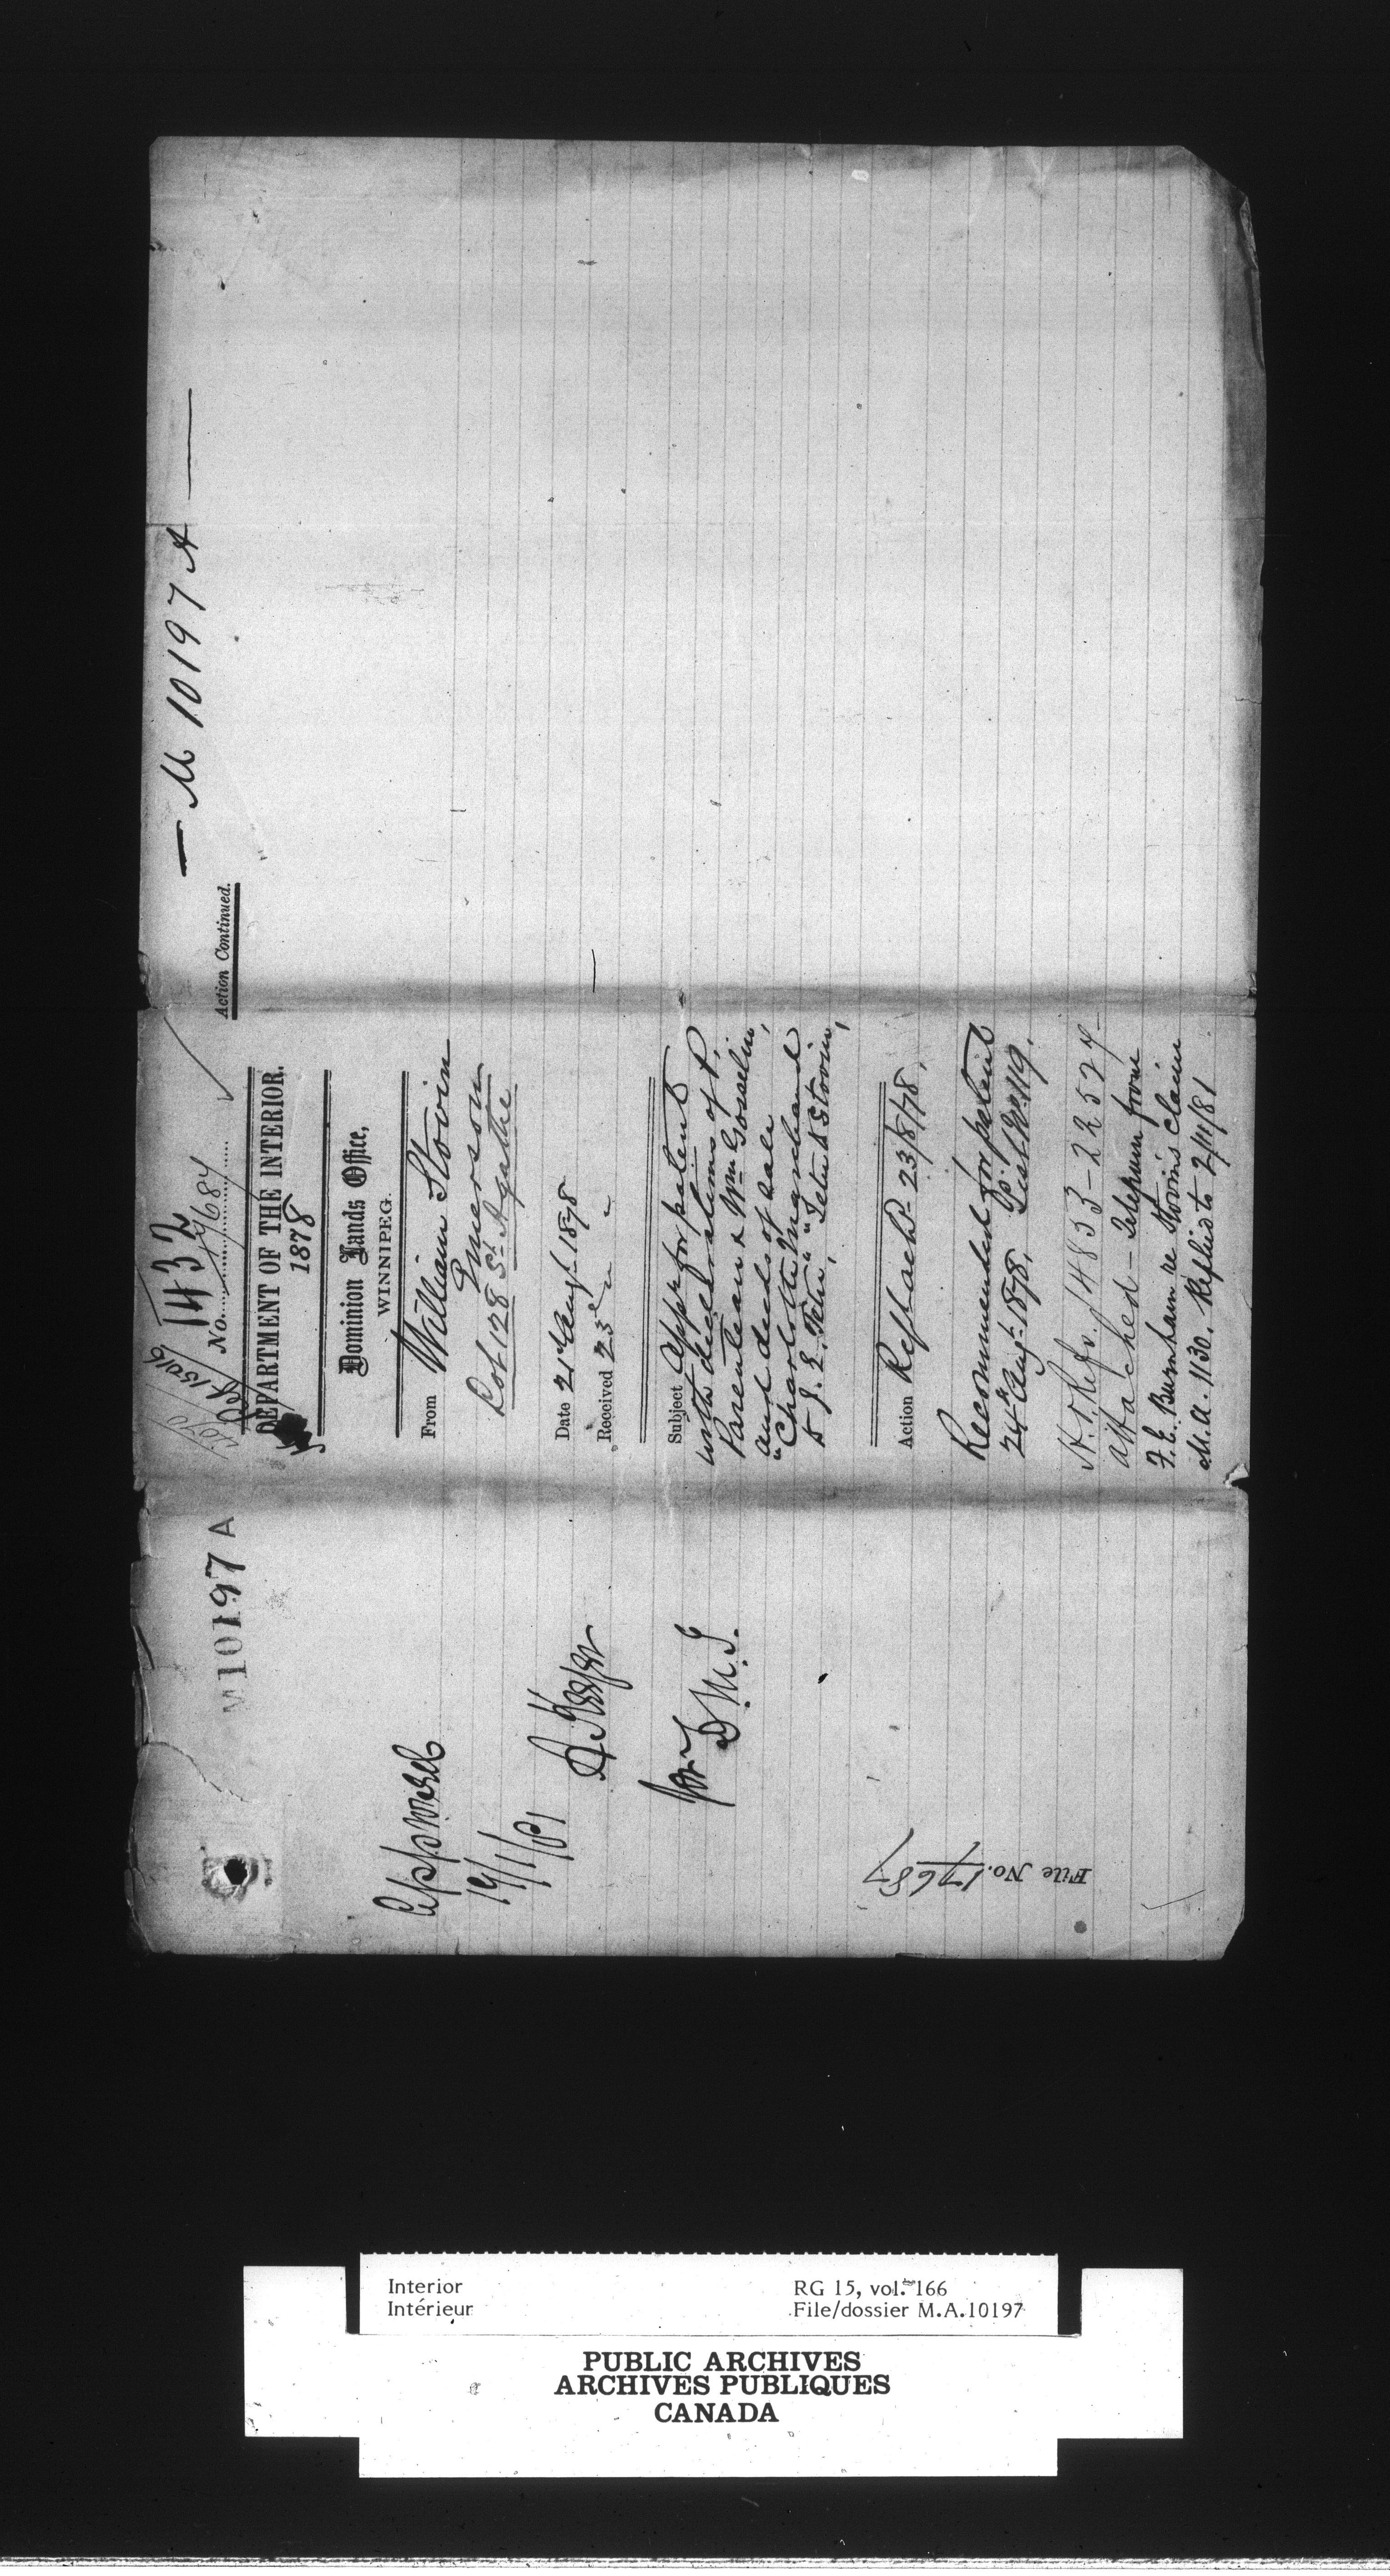 M 10197 A
Approved
19/1/81
for D.M.I.
File No. 17687
1432
Ref 15016
No. 17687
DEPARTMENT OF THE INTERIOR.
1878
Dominion Lands Office,
WINNIPEG.
From William Stovin
Emerson
Lot 128 St. Agathe
Date 21st Augt. 1878
Received 23rd " "
Subject Appn for patent
with declarations of P.
Parenteau & Wm Gosselin,
and deeds of sale
"Charlotte Marchand
to J. E. Tetu", "Tetu to Stovin,"
Action Ref Pachd 23/8/78.
Recommended for patent
24th Augt. 1878. List No. 119.
N.B. Refs. 14833-22527-
attached - Telegram from
F. E. Burnham re Stovin's claim
M.A. 1130. Replied to 2/11/81
Action Continued.
— M 10197 A —
Interior
Intérieur
RG 15, vol. 166
File/dossier M.A.10197
PUBLIC ARCHIVES
ARCHIVES PUBLIQUES
CANADA